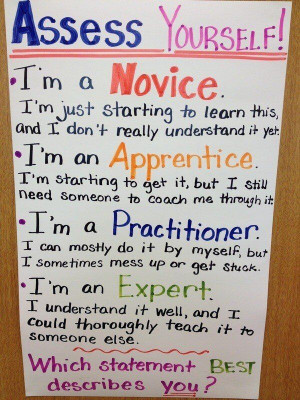 Assess Yourself!
• I'm a Novice.
I'm just starting to learn this,
and I don't really understand it yet.
• I'm an Apprentice.
I'm starting to get it, but I still
need someone to coach me through it.
• I'm a Practitioner.
I can mostly do it by myself, but
I sometimes mess up or get stuck.
• I'm an Expert.
I understand it well, and I
could thoroughly teach it to
someone else.
Which statement BEST
describes you?